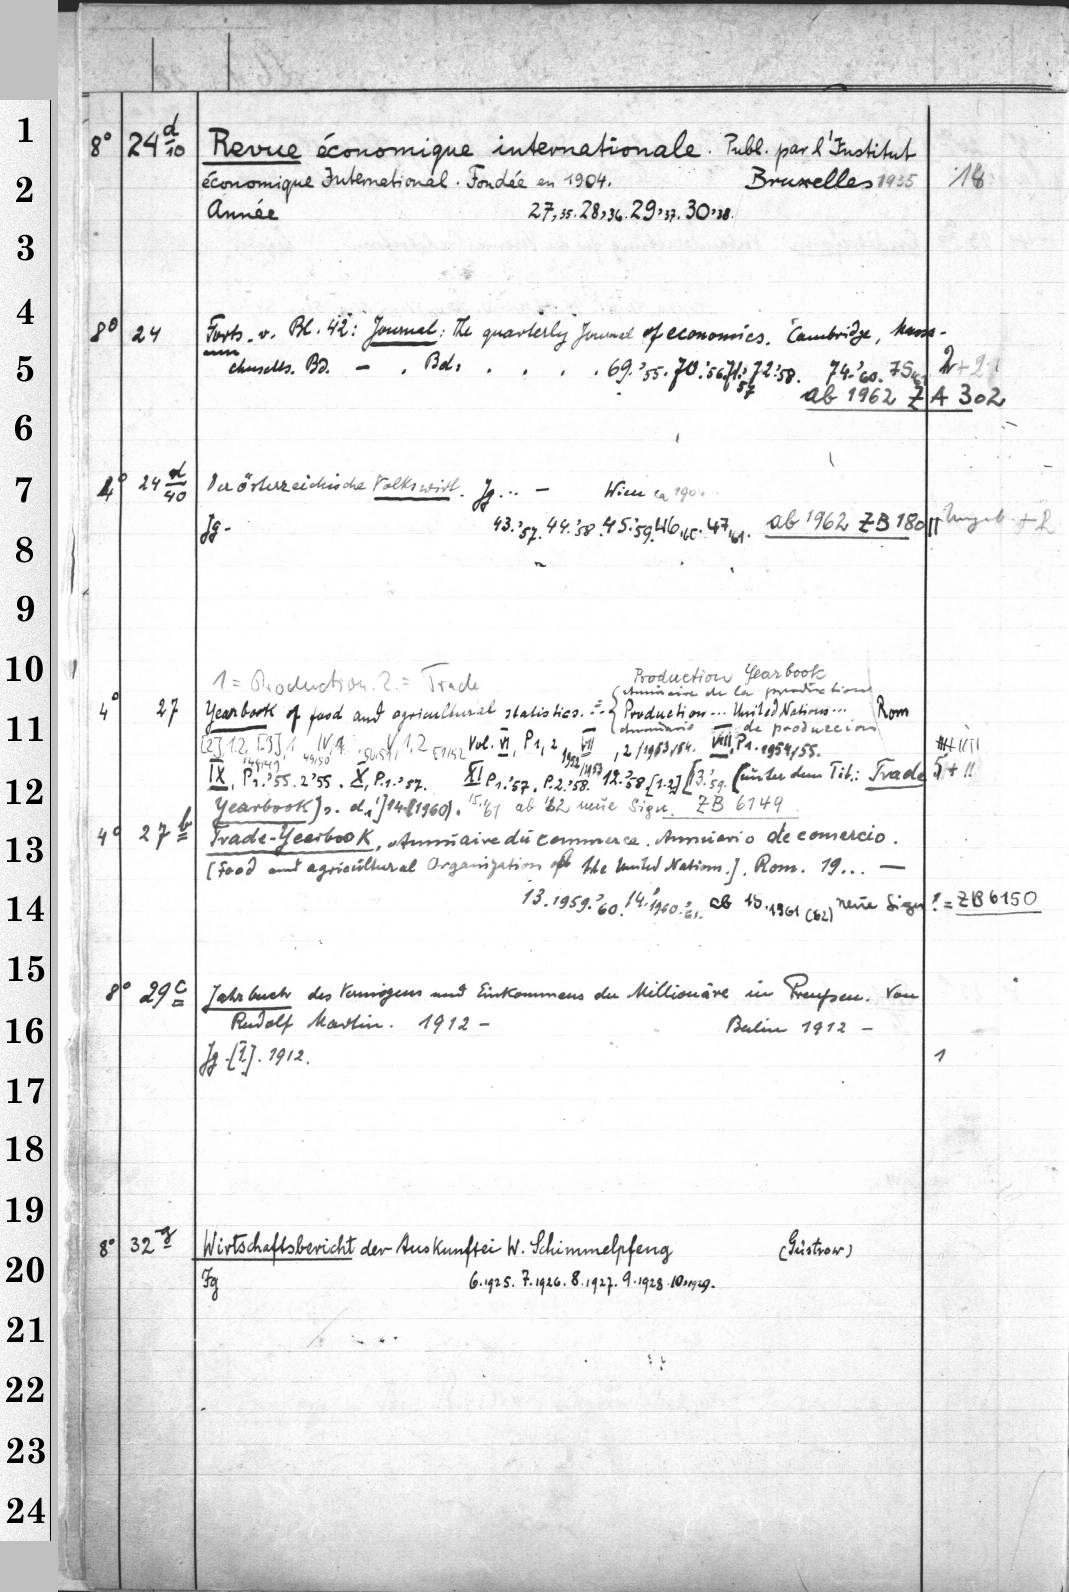 8° 24 d/10 Revue économique internationale. Publ. par l'Institut
économique International. Fondée en 1904. Bruxelles 1935 18
Année 27,35. 28,36. 29,37. 30,38.
8° 24 Forts. v. Bl. 42: Journal: The quarterly Journal of economics. Cambridge, Massa-
chusetts. Bd. — . Bd. . . . . 69.'55. 70.'56. 71.'57 72.'58. 74.'60. 75.'61 2+2
ab 1962 ZA 302
4° 24 d/40 Der österreichische Volkswirt. Jg... — Wien ca 190..
Jg. 43.'57. 44.'58. 45.'59. 46. 47.'61. ab 1962 ZB 180 Ungeb. + 2
1 = Production. 2. = Trade Production Yearbook
Annuaire de la production
4° 27 Yearbook of food and agricultural statistics. = Production ... United Nations ... Rom
Annuario de produccion
[2] 1.2. [3] 1 IV,1 49/50 V, 1,2 51/52 Vol. VI, P1, 2 1952/1953 VII, 2/1953/54. VIII, P1. 1954/55.
IX, P1.'55. 2'55. X, P.1.'57. XI P1.'57. P.2.'58. 12.'58 [1.2] [13.'59. (unter dem Tit.: Trade 5 + 11
Yearbook) s. d.!] 14 (1960). 15.'61 ab '62 neue Sign. ZB 6149
4° 27 b Trade-Yearbook, Annuaire du commerce. Annuario de comercio.
[Food and agricultural Organization of the United Nations.]. Rom. 19... —
13.1959.'60. 14.1960.'61. ab 15.1961 (62) neue Sign! = ZB 6150
8° 29 c Jahrbuch des Vermögens und Einkommens der Millionäre in Preußen. Von
Rudolf Martin. 1912 – Berlin 1912 –
Jg. [1]. 1912. 1
8° 32 g Wirtschaftsbericht der Auskunftei W. Schimmelpfeng (Güstrow)
Jg 6.1925. 7.1926. 8.1927. 9.1928. 10.1929.
1
2
3
4
5
6
7
8
9
10
11
12
13
14
15
16
17
18
19
20
21
22
23
24